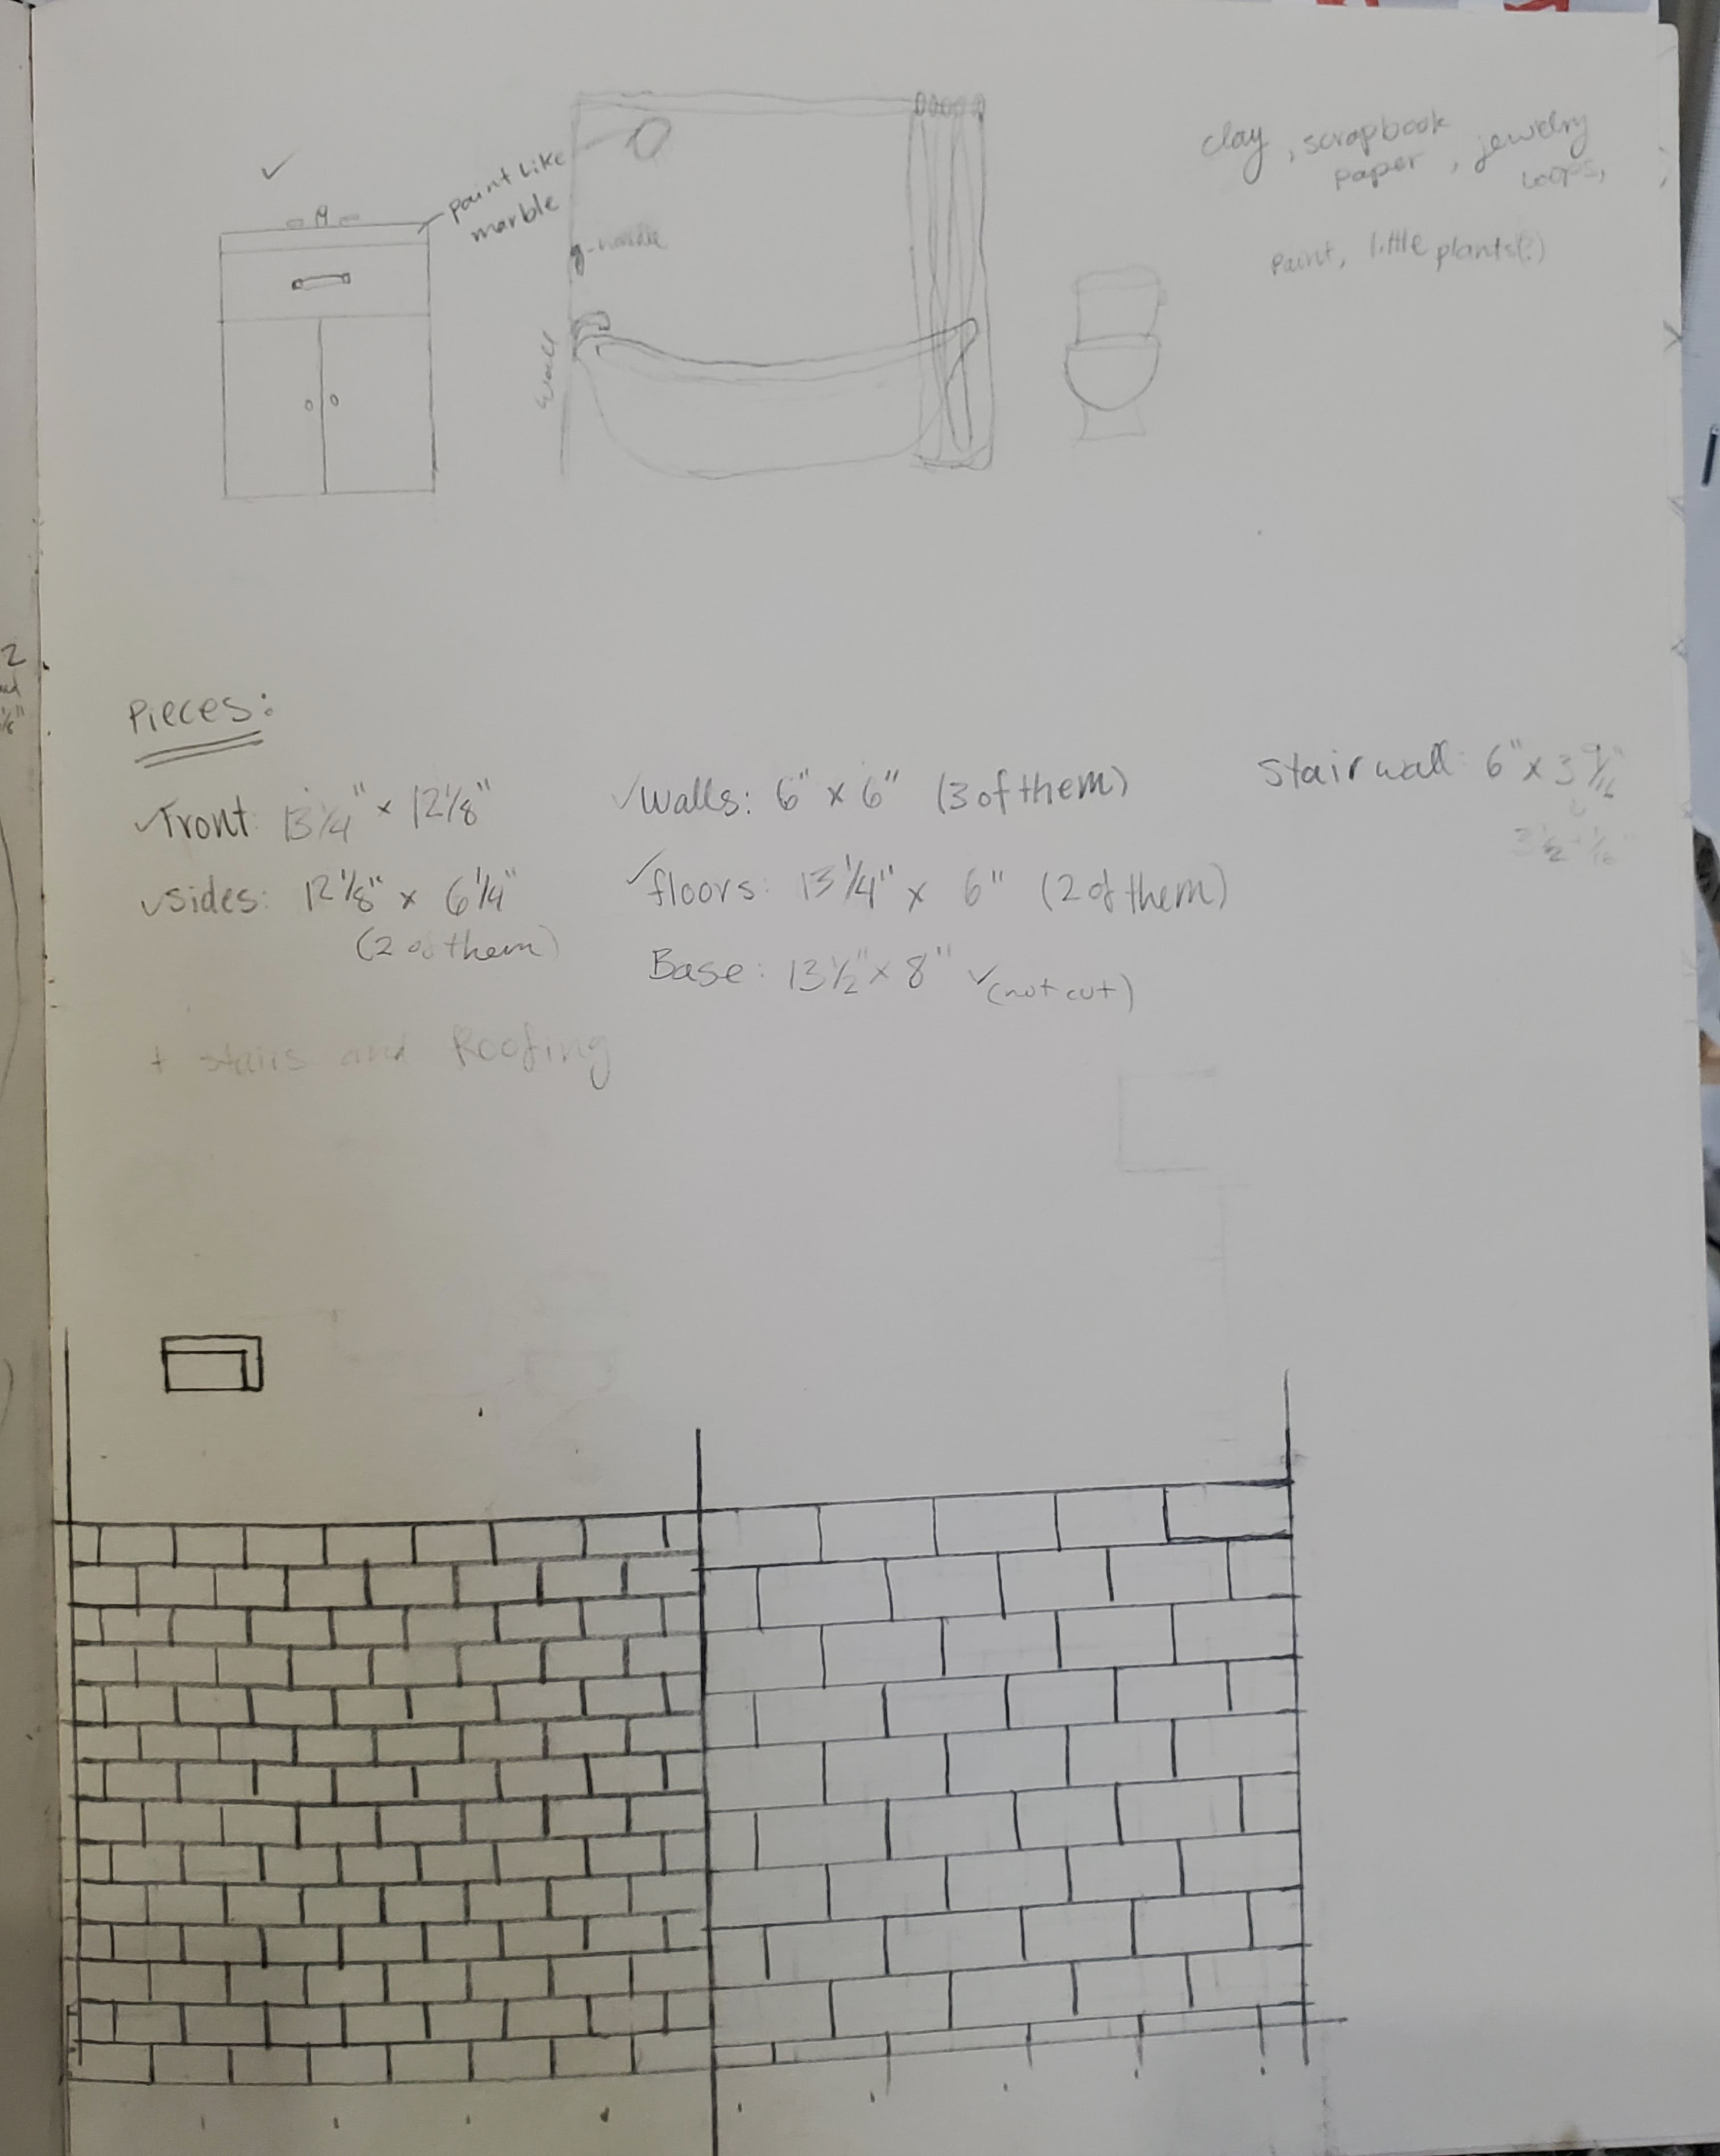 clay, scrapbook paper, jewelry loops,
paint, little plants(?)
paint like
marble
wall
Pieces:
✓Front: 13 1/4" x 12 1/8"
✓sides: 12 1/8" x 6 1/4"
(2 of them)
✓walls: 6" x 6" (3 of them)
✓floors: 13 1/4" x 6" (2 of them)
Base: 13 1/2" x 8" ✓(not cut)
Stair wall: 6" x 3 9/16"
+ stairs and Roofing
2